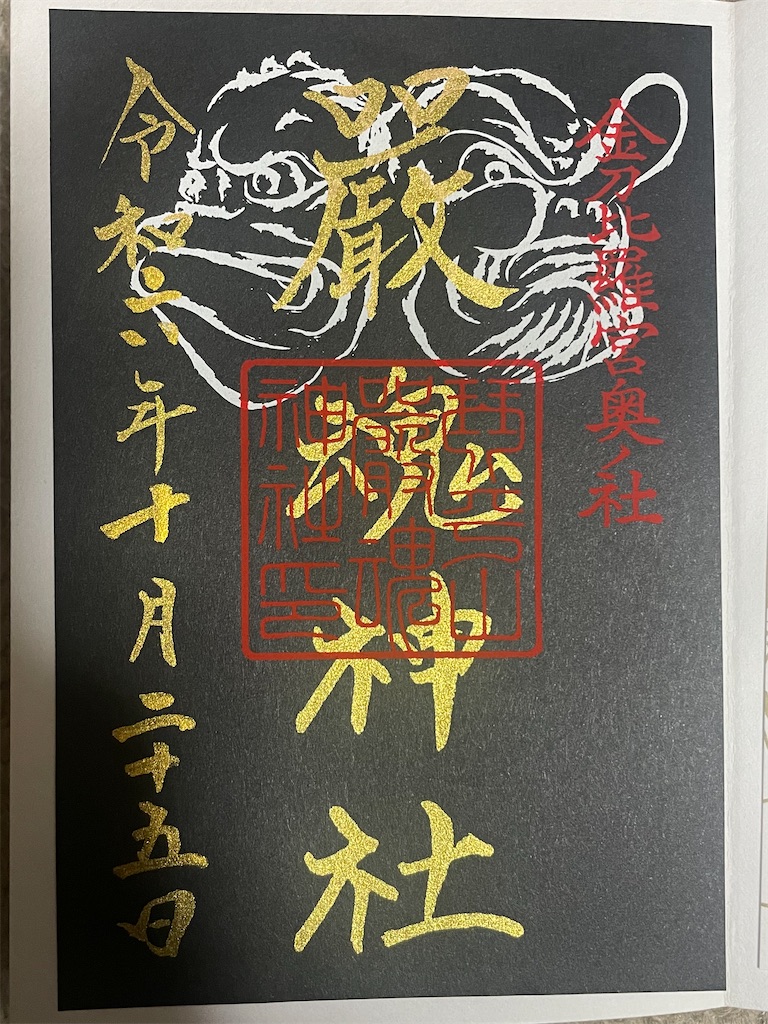 金刀比羅宮奥ノ社
嚴魂神社
琴平山
嚴魂
神社印
令和六年十月二十五日